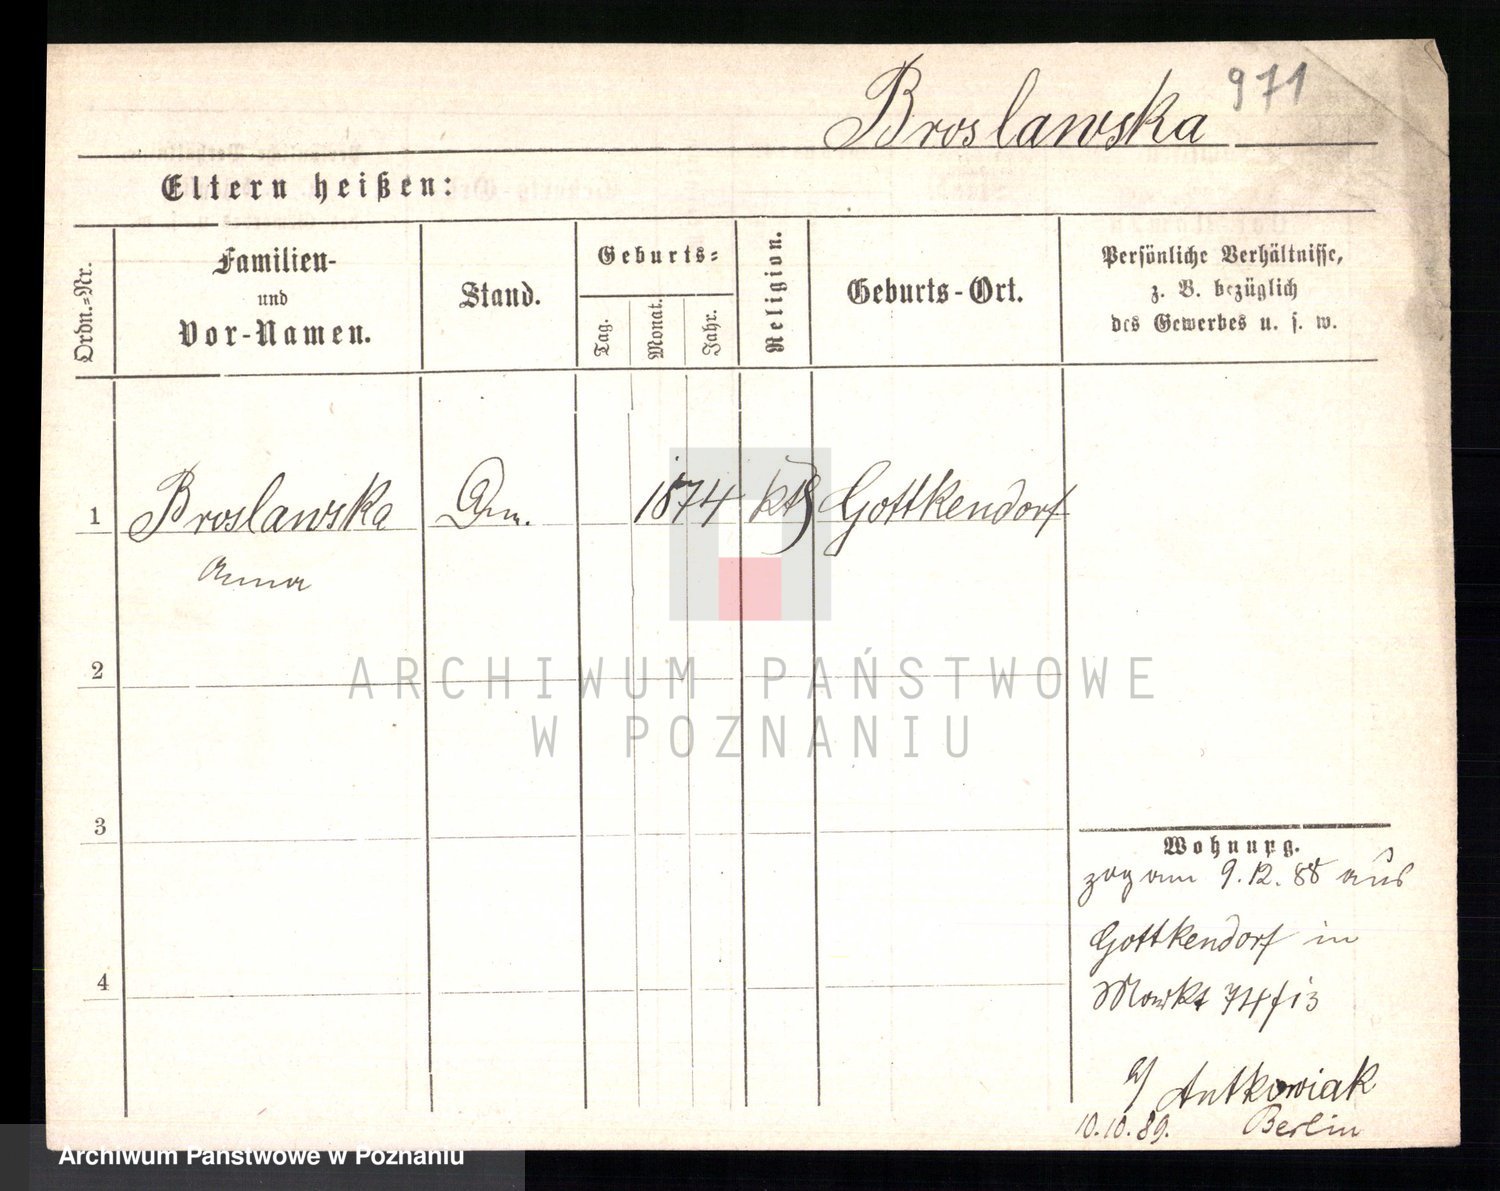 Broslawska 971
Eltern heißen:
Ordn.=Nr.
Familien-
und
Vor-Namen.
Stand.
Geburts=
Tag.
Monat.
Jahr.
Religion.
Geburts-Ort.
Persönliche Verhältnisse,
z. B. bezüglich
des Gewerbes u. s. w.
1 Broslawska 1874 kth Gottkendorf
Anna
2
3
4
Wohnung.
zog am 9.12.88 aus
Gottkendorf in
Markt 74
Antkowiak
10.10.89. Berlin
ARCHIWUM PAŃSTWOWE
W POZNANIU
Archiwum Państwowe w Poznaniu